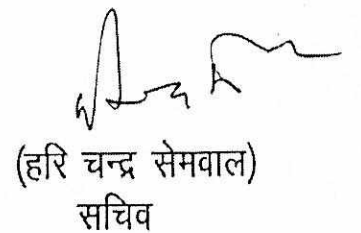 (हरि चन्द्र सेमवाल)
सचिव